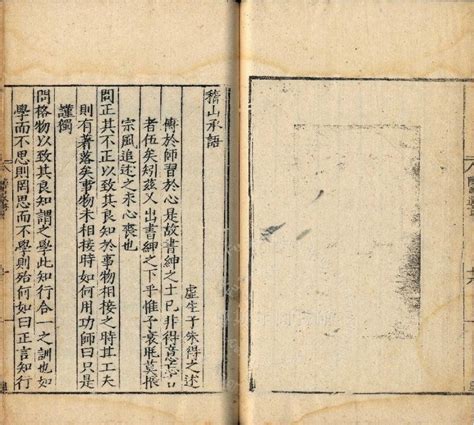 稽山承語
虛生子朱得之述
傳於師習於心是故書紳之士已非得意忘
者伍矣矧茲又出書紳之下乎惟予衰眊莫振
宗風追述之求心喪也
問正其不正以致其良知於事物相接之時其工夫
則有著落矣事物未相接時如何用功師曰只是
謹獨
問格物以致其良知謂之學此知行合一之訓也如
學而不思則罔思而不學則殆何如曰正言知行